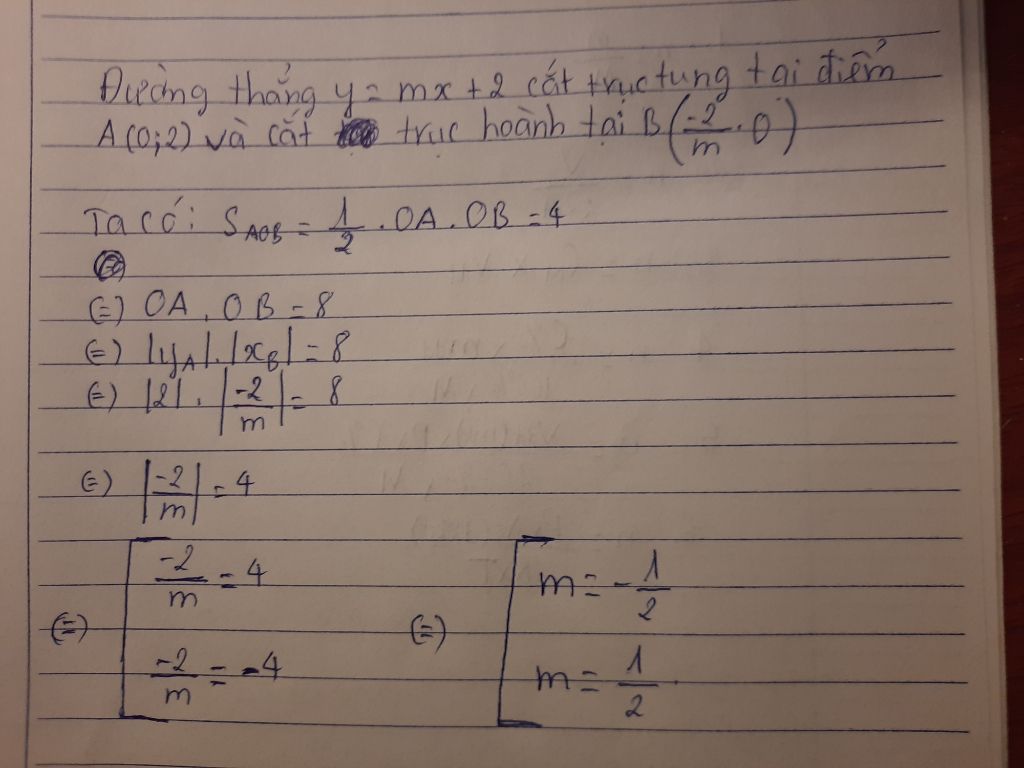 Đường thẳng y = mx + 2 cắt trục tung tại điểm
A(0;2) và cắt trục hoành tại B(-2/m . 0)
Ta có: S_AOB = 1/2 . OA . OB = 4
(=) OA . OB = 8
(=) |y_A| . |x_B| = 8
(=) |2| . |-2/m| = 8
(=) |-2/m| = 4
(=) [ -2/m = 4 (=) [ m = -1/2
-2/m = -4 m = 1/2